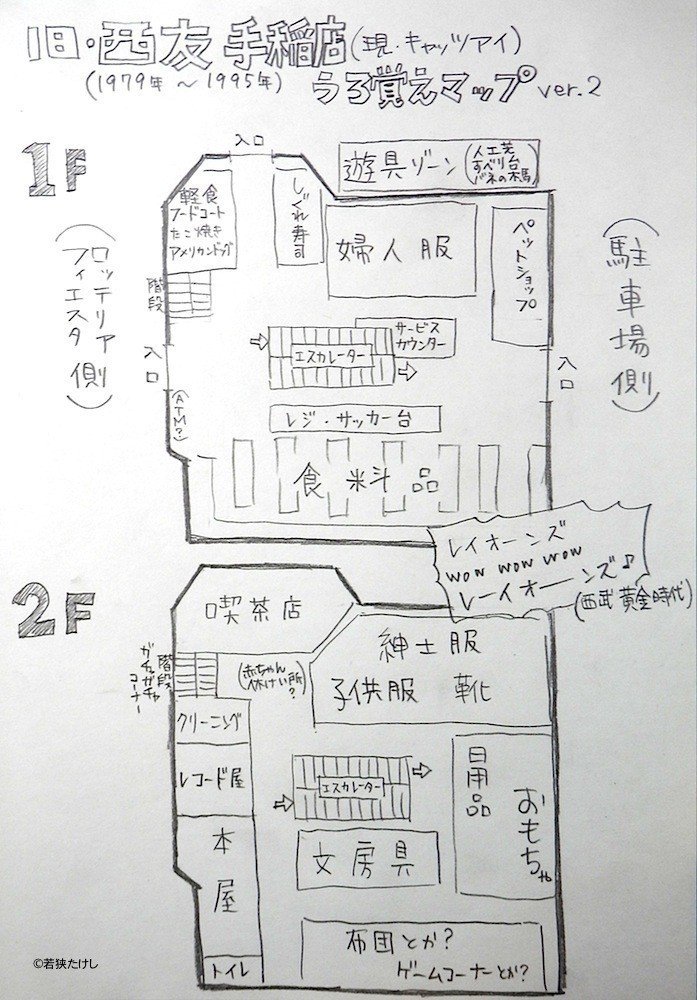 旧・西友 手稲店(現・キャッツアイ)
(1979年 ～1995年) うろ覚えマップ ver.2
1F
入口
遊具ゾーン(人工芝 すべり台 バネの木馬)
軽食
フードコート
たこ焼き
アメリカンドッグ
しぐれ寿司
婦人服
ペットショップ
(ロッテリア
フィエスタ側)
(駐車場側)
階段
サービス
カウンター
エスカレーター
入口
入口
(ATM?)
レジ・サッカー台
食料品
レイオーンズ
wow wow wow
レーイオーーンズ♪
(西武黄金時代)
2F
喫茶店
紳士服
子供服 靴
階段
ガチャガチャ
コーナー
(赤ちゃん
休けい所?)
クリーニング
レコード屋
エスカレーター
日用品
おもちゃ
本屋
文房具
布団とか?
ゲームコーナーとか?
トイレ
©若狭たけし